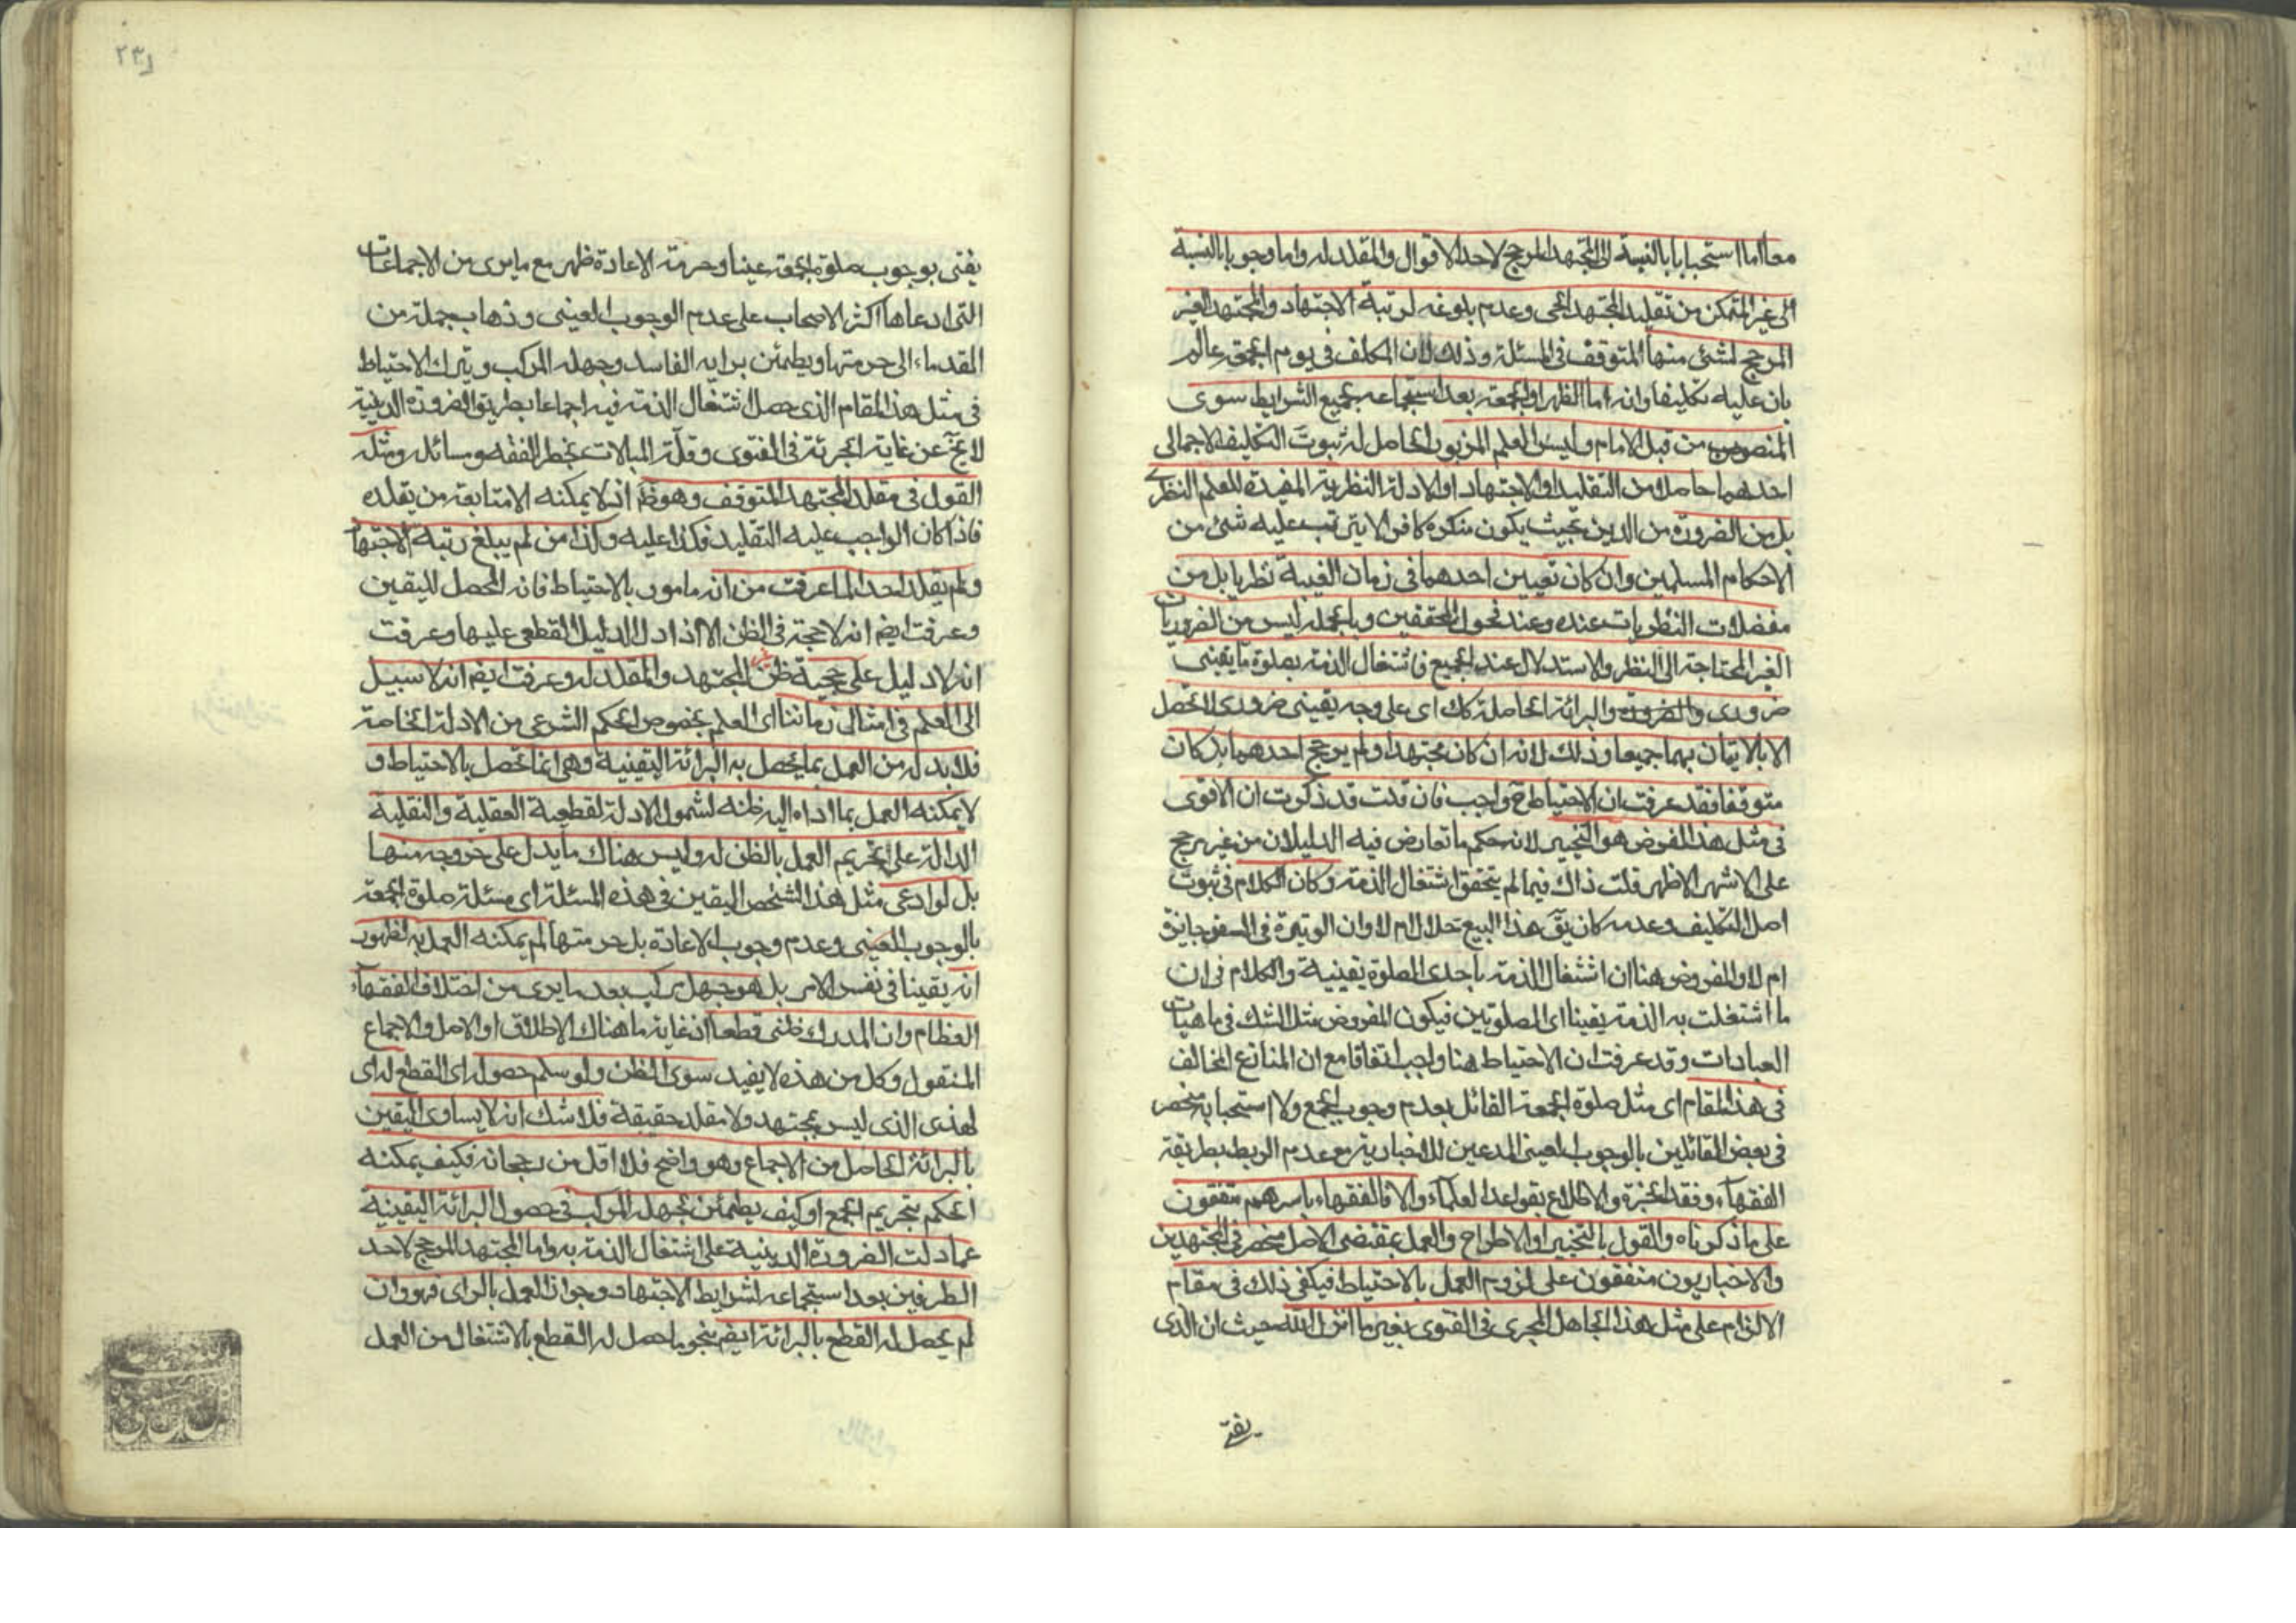 معا اما استحبابا بالنسبة الی المجتهد المرجح لاحد الاقوال والمقلد له واما وجوبا بالنسبة
الی غیر المتمکن من تقلید المجتهد الحی وعدم بلوغه لرتبة الاجتهاد والمجتهد الغیر
المرجح لشئ منها المتوقف فی المسئلة وذلک لان المکلف فی یوم الجمعة عالم
بان علیه تکلیفا وانه اما الظهر او الجمعة بعد استجماعه بجمیع الشرایط سوی
المنصوص من قبل الامام ولیس العلم المزبور الحاصل له ثبوت التکلیف الاجمالی
احدهما حاصلا من التقلید او الاجتهاد او الادلة النظریة المفیدة للعلم النظری
بل من الضرورة من الدین بحیث یکون منکره کافرا لا یترتب علیه شئ من
الاحکام المسلمین وان کان تعیین احدهما فی زمان الغیبة نظریا بل من
معضلات النظریات عنده وعند فحول المحققین وبالجملة لیس من الضروریات
الغیر المحتاجة الی النظر والاستدلال عند الجمیع فاشتغال الذمة بصلوة ما یقینی
ضروری والبرائة الحاصلة کک ای علی وجه یقینی ضروری لا تحصل
الا بالاتیان بهما جمیعا وذلک لانه ان کان مجتهدا ولم یرجح احدهما بل کان
متوقفا فقد عرفت ان الاحتیاط ح واجب فان قلت قد ذکرت ان الاقوی
فی مثل هذا المفروض هو التخییر لانه حکم ما تعارض فیه الدلیلان من غیر مرجح
علی الاشهر الاظهر قلت ذاک فیما لم یتحقق اشتغال الذمة وکان الکلام فی ثبوت
اصل التکلیف وعدمه کان یق هذا البیع حلال ام لا وان الوتیرة فی السفر جایزة
ام لا والمفروض هنا ان اشتغال الذمة باحدی الصلوة یقینیة والکلام فی ان
ما اشتغلت به الذمة یقینا ای الصلوتین فیکون المفروض مثل الشک فی ماهیات
العبادات وقد عرفت ان الاحتیاط هنا واجب اتفاقا مع ان المنازع المخالف
فی هذا المقام ای مثل صلوة الجمعة القائل بعدم وجوب الجمع ولا استحبابه منحصر
فی بعض القائلین بالوجوب العینی المدعین للاخباریة مع عدم الربط بطریقة
الفقهآء وفقد الخبرة والاطلاع بقواعد العلمآء والا فالفقهاء باسرهم متفقون
علی ما ذکرناه والقول بالتخییر او الاطراح والعمل بمقتضی الاصل منحصر فی المجتهدین
والاخباریون متفقون علی لزوم العمل بالاحتیاط فیکفی ذلک فی مقام
الالزام علی مثل هذا الجاهل المجری فی الفتوی بغیر ما انزل الله حیث ان الذی
یفتی
٢٣١
یفتی بوجوب صلوة الجمعة عینا وحرمة الاعادة ظهر مع ما یری من الاجماعات
التی ادعاها اکثر الاصحاب علی عدم الوجوب العینی وذهاب جملة من
القدماء الی حرمتها ویطمئن برایه الفاسد وجهله المرکب ویترک الاحتیاط
فی مثل هذا المقام الذی حصل اشتغال الذمة فیه اجماعا بطریق الضرورة الدینیة
لا یخ عن غایة الجرئة فی الفتوی وقلة المبالات بخطر الفقه ومسائله ومثله
القول فی مقلد المجتهد المتوقف وهو ظ اذ لا یمکنه الا متابعة من یقلده
فاذا کان الواجب علیه التقلید فکذا علیه وکذا من لم یبلغ رتبة الاجتهاد
ولم یقلد احدا لما عرفت من انه مامور بالاحتیاط فانه المحصل للیقین
وعرفت ایضم انه لا حجة فی الظن الا اذا دل الدلیل القطعی علیها وعرفت
انه لا دلیل علی حجیة ظن غیر المجتهد والمقلد له وعرفت ایضم انه لا سبیل
الی العلم فی امثال زماننا ای العلم بخصوص الحکم الشرعی من الادلة الخاصة
فلا بد له من العمل بما یحصل به البرائة الیقینیة وهی انما تحصل بالاحتیاط و
لا یمکنه العمل بما اداه الیه ظنه لشمول الادلة القطعیة العقلیة والنقلیة
الدالة علی تحریم العمل بالظن له ولیس هناک ما یدل علی خروجه منها
بل لو ادعی مثل هذا الشخص الیقین فی هذه المسئلة ای مسئلة صلوة الجمعة
بالوجوب العینی وعدم وجوب الاعادة بل حرمتها لم یمکنه العمل به لظهور
انه یقینا فی نفس الامر بل هو جهل مرکب بعد ما یری من اختلاف الفقهآء
العظام وان المدرک ظنی قطعا اذ غایة ما هناک الاطلاق او الاصل والاجماع
المنقول وکل من هذه لا یفید سوی الظن ولو سلم حصول رای القطع له ای
لهذی الذی لیس بمجتهد ولا مقلد حقیقة فلا شک انه لا یساوی الیقین
بالبرائة الحاصل من الاجماع وهو واضح فلا اقل من رجحانه فکیف یمکنه
الحکم بتحریم الجمع او کیف یطمئن بجهله المرکب فی حصول البرائة الیقینیة
عما دلت الضرورة الدینیة علی اشتغال الذمة به واما المجتهد المرجح لاحد
الطرفین بعد استجماعه لشرایط الاجتهاد وجواز العمل بالرای فهو وان
لم یحصل له القطع بالبرائة ایضم بنحو ما حصل له القطع بالاشتغال من العمل